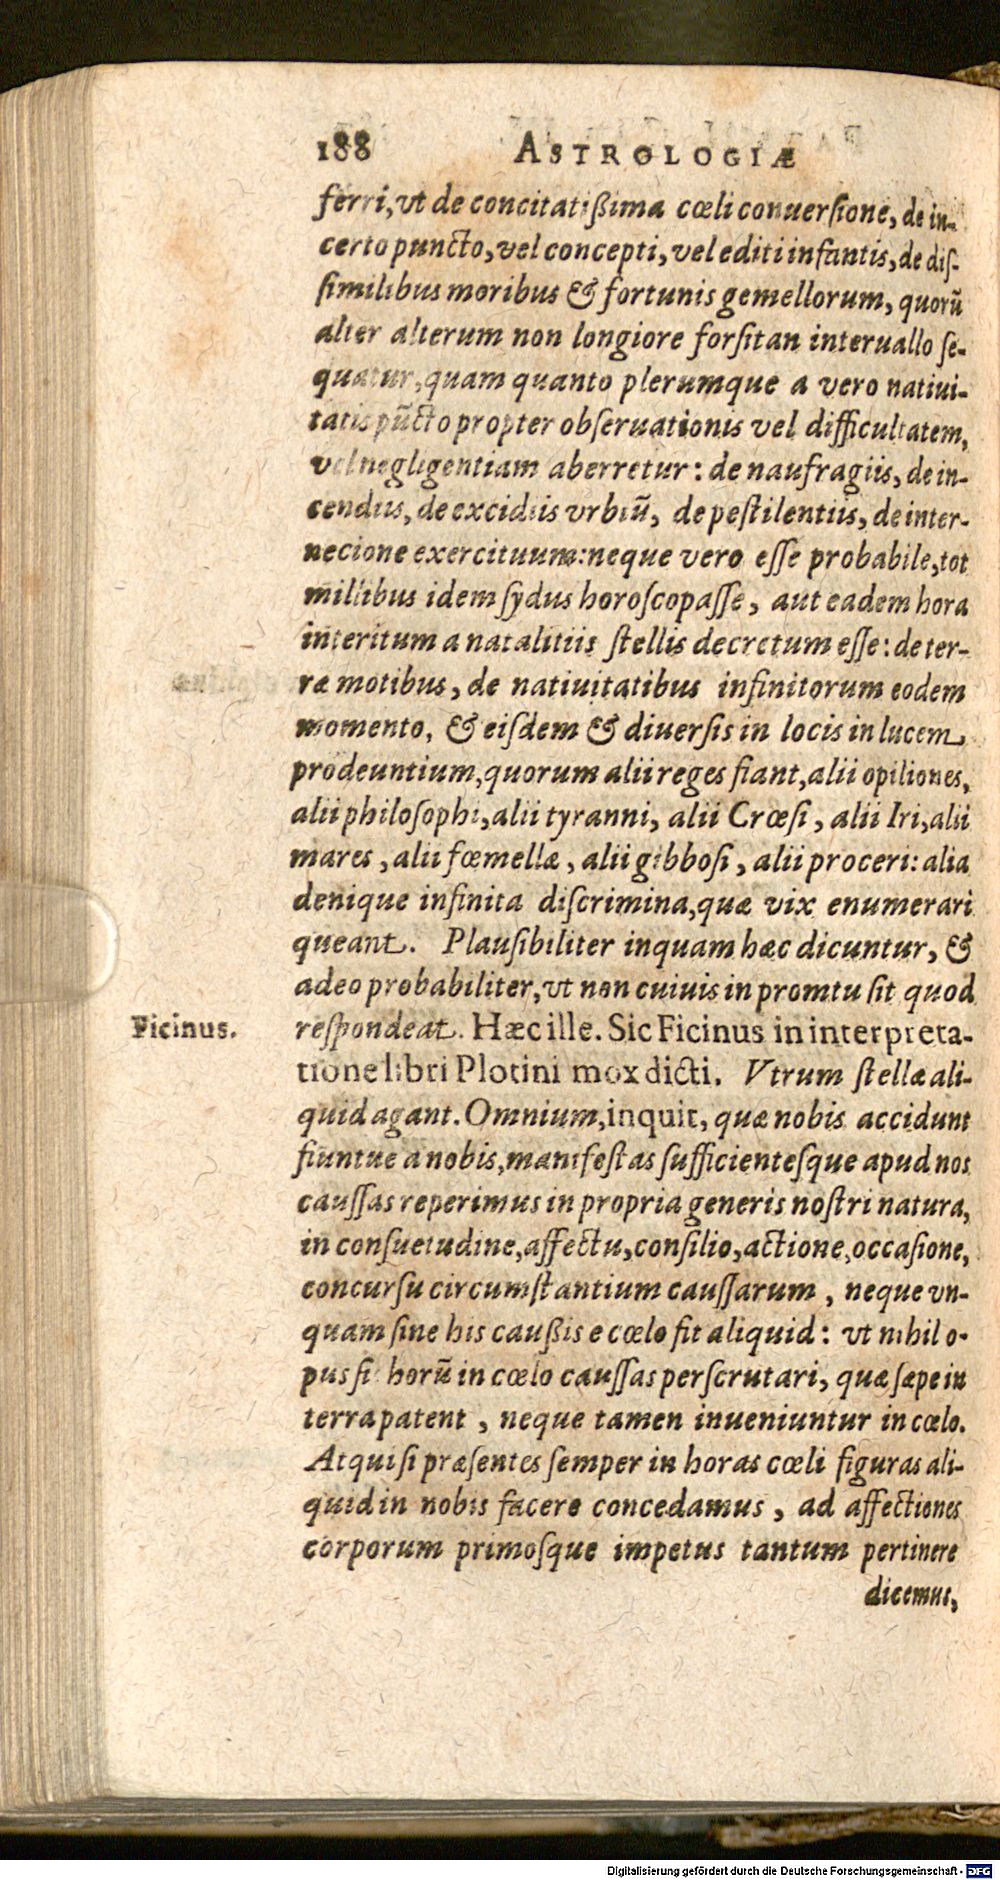 188 ASTROLOGIÆ
ferri, vt de concitatißima cœli conuersione, de in-
certo puncto, vel concepti, vel editi infantis, de dis-
similibus moribus & fortunis gemellorum, quorū
alter alterum non longiore forsitan interuallo se-
quatur, quam quanto plerumque a vero natiui-
tatis pūcto propter obseruationis vel difficultatem,
vel negligentiam aberretur: de naufragiis, de in-
cendiis, de excidiis vrbiū, de pestilentiis, de inter-
necione exercituum: neque vero esse probabile, tot
millibus idem sydus horoscopasse, aut eadem hora
interitum a natalitiis stellis decretum esse: de ter-
ræ motibus, de natiuitatibus infinitorum eodem
momento, & eisdem & diuersis in locis in lucem
prodeuntium, quorum alii reges fiant, alii opiliones,
alii philosophi, alii tyranni, alii Crœsi, alii Iri, alii
mares, alii fœmellæ, alii gibbosi, alii proceri: alia
denique infinita discrimina, quæ vix enumerari
queant. Plausibiliter inquam hæc dicuntur, &
adeo probabiliter, vt non cuiuis in promtu sit quod
Ficinus. respondeat. Hæc ille. Sic Ficinus in interpreta-
tione libri Plotini mox dicti. Vtrum stellæ ali-
quid agant. Omnium, inquit, quæ nobis accidunt
fiuntue a nobis, manifestas sufficientesque apud nos
caussas reperimus in propria generis nostri natura,
in consuetudine, affectu, consilio, actione, occasione,
concursu circumstantium caussarum, neque vn-
quam sine his caußis e cœlo fit aliquid: vt nihil o-
pus sit horū in cœlo caussas perscrutari, quæ sæpe in
terra patent, neque tamen inueniuntur in cœlo.
Atqui si præsentes semper in horas cœli figuras ali-
quid in nobis facere concedamus, ad affectiones
corporum primosque impetus tantum pertinere
dicemus,
Digitalisierung gefördert durch die Deutsche Forschungsgemeinschaft - DFG